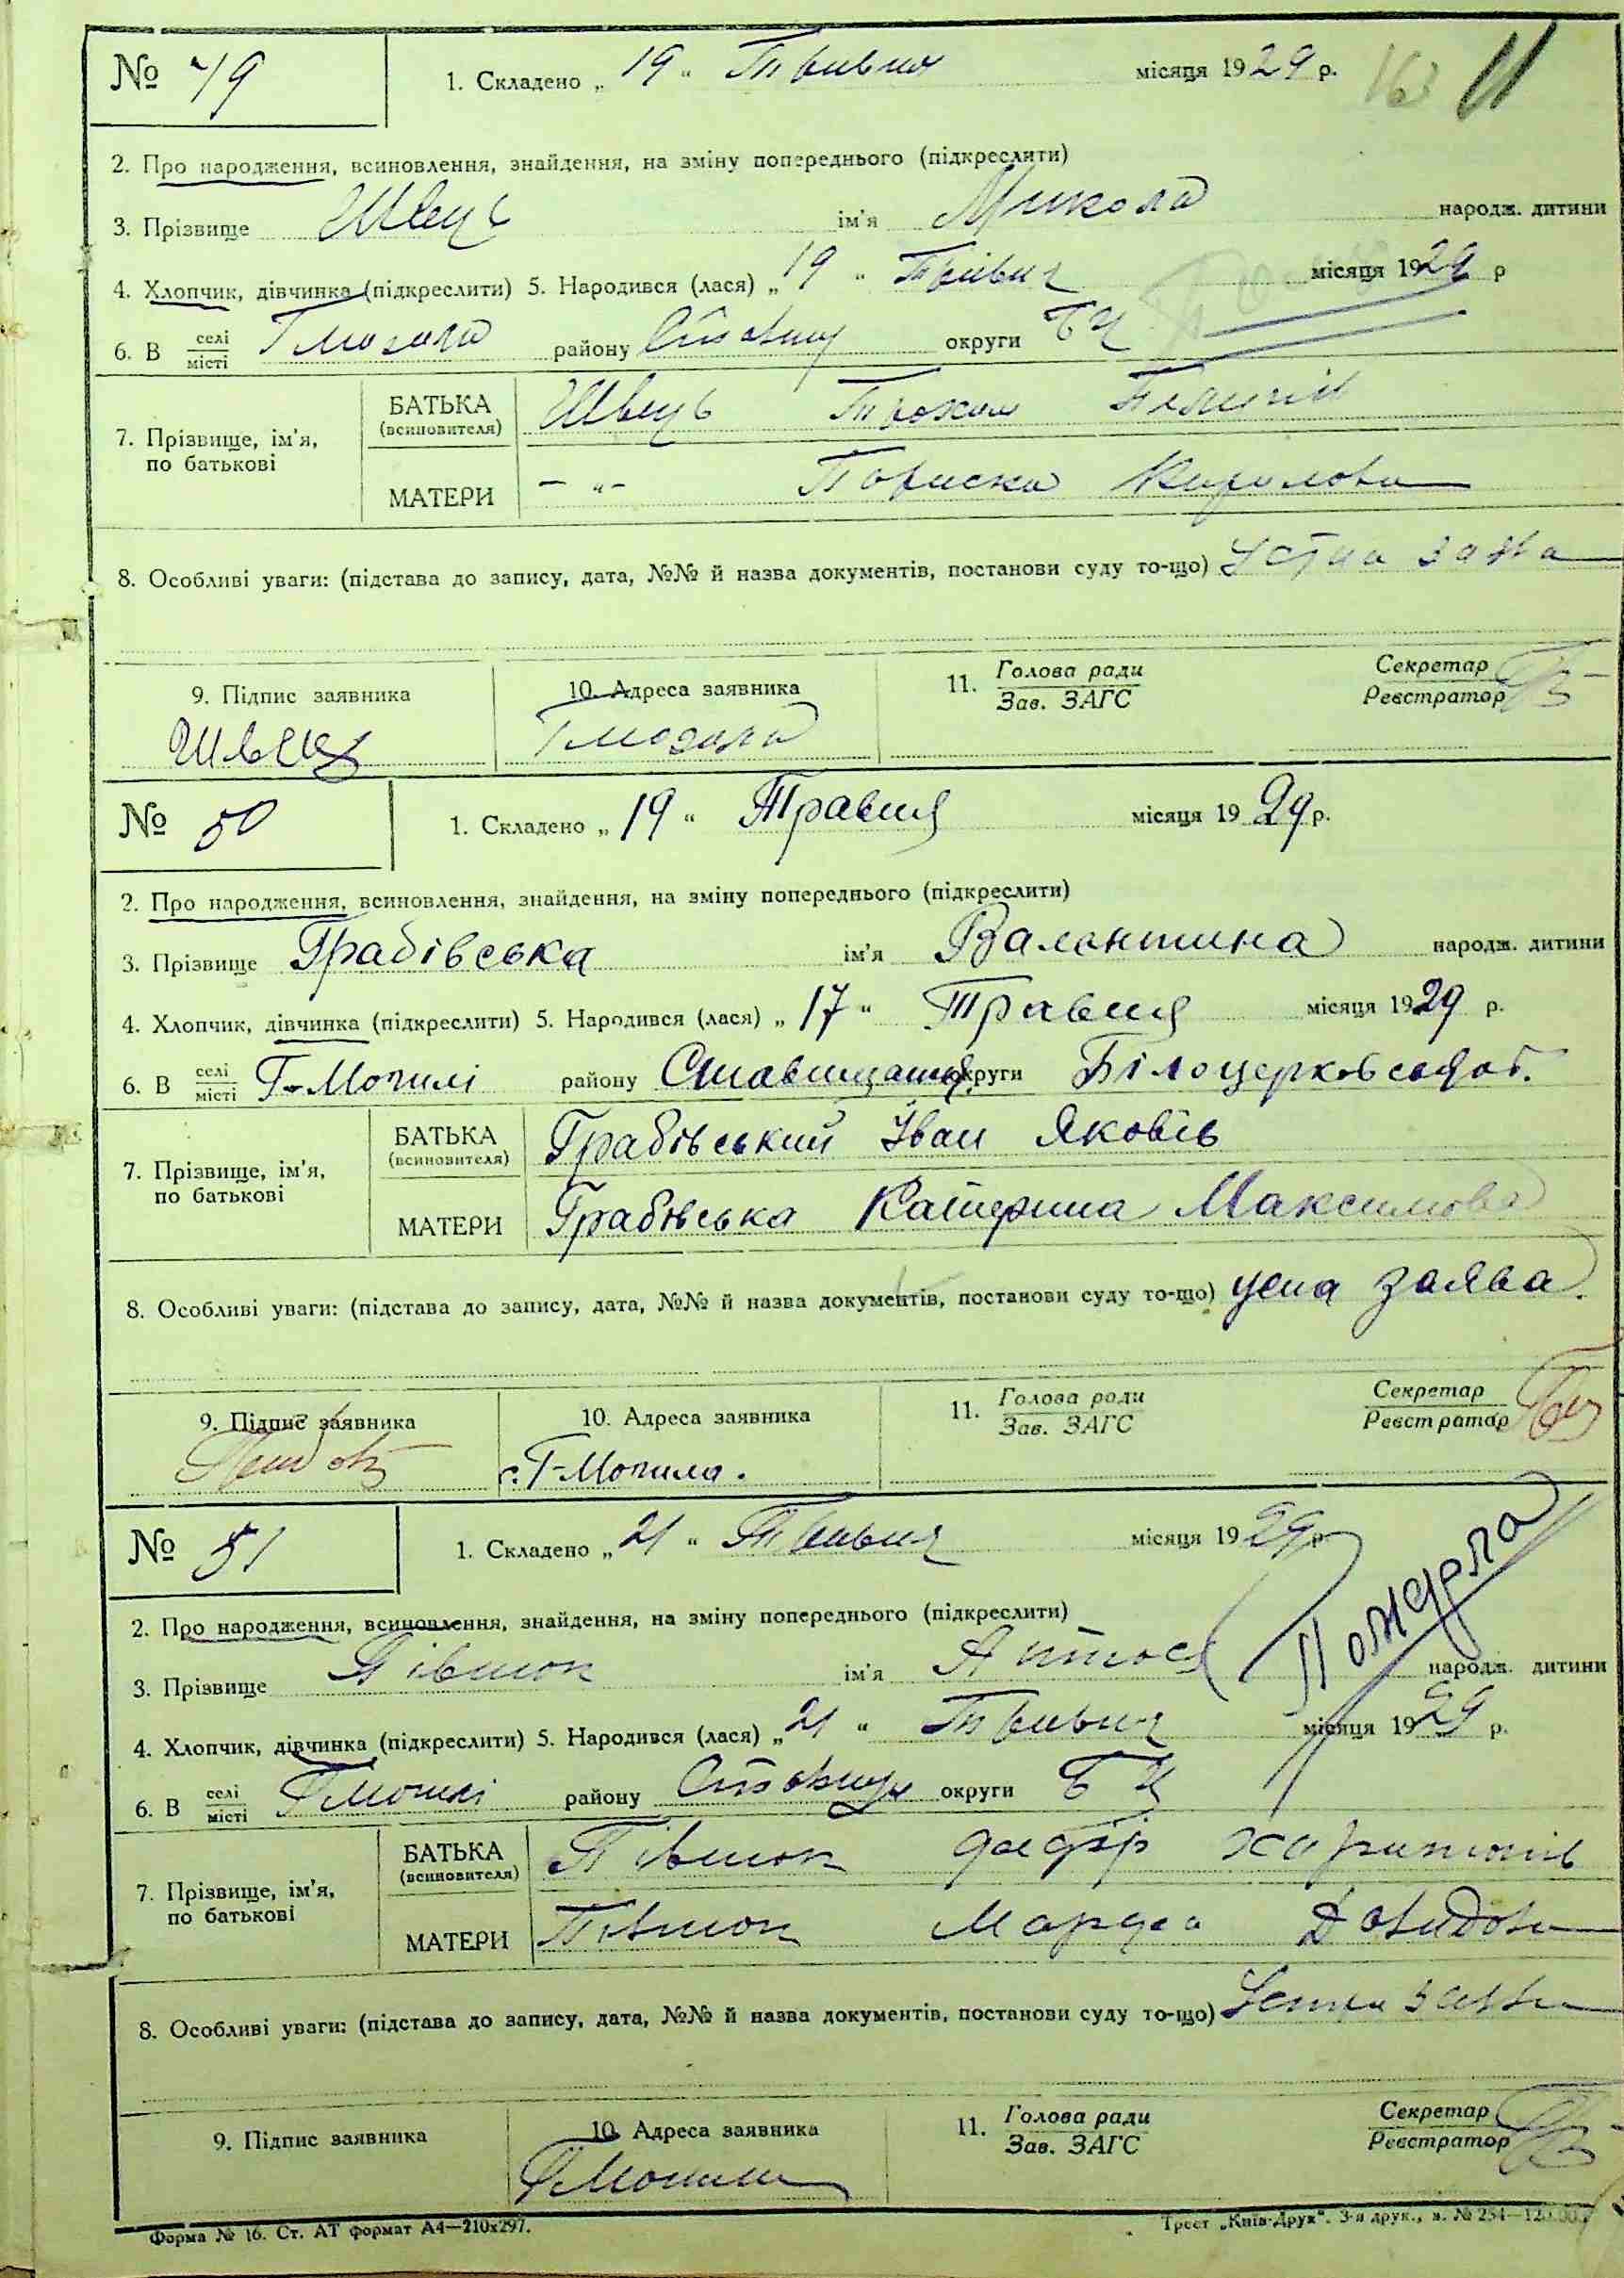 № 49 1. Складено „ 19 “ Травня місяця 1929 р. 11
2. Про народження, всиновлення, знайдення, на зміну попереднього (підкреслити)
3. Прізвище Швець ім'я Микола народж. дитини
4. Хлопчик, дівчинка (підкреслити) 5. Народився (лася) „ 19 “ Травня місяця 1929 р
6. В селі/місті району округи БЦ
7. Прізвище, ім'я, по батькові
БАТЬКА (всиновителя) Швець Трохим
МАТЕРИ – „ – Параска Кирилова
8. Особливі уваги: (підстава до запису, дата, №№ й назва документів, постанови суду то-що) Устна заява
9. Підпис заявника 10. Адреса заявника 11. Голова ради Секретар
Зав. ЗАГС Реєстратор
Швець
№ 50 1. Складено „ 19 “ Травня місяця 1929 р.
2. Про народження, всиновлення, знайдення, на зміну попереднього (підкреслити)
3. Прізвище Грабівська ім'я Валентина народж. дитини
4. Хлопчик, дівчинка (підкреслити) 5. Народився (лася) „ 17 “ Травня місяця 1929 р.
6. В селі/місті Г-Могилі району Ставищанськ. округи Білоцерковської об.
7. Прізвище, ім'я, по батькові
БАТЬКА (всиновителя) Грабівський Іван Яковів
МАТЕРИ Грабівська Катерина Максимова
8. Особливі уваги: (підстава до запису, дата, №№ й назва документів, постанови суду то-що) усна заява.
9. Підпис заявника 10. Адреса заявника 11. Голова ради Секретар
Зав. ЗАГС Реєстратор
с. Г-Могила.
№ 51 1. Складено „ 21 “ Травня місяця 1929 р
Померла
2. Про народження, всиновлення, знайдення, на зміну попереднього (підкреслити)
3. Прізвище Півнюк ім'я Антося народж. дитини
4. Хлопчик, дівчинка (підкреслити) 5. Народився (лася) „ 21 “ Травня місяця 1929 р.
6. В селі/місті Гмогилі району округи БЦ
7. Прізвище, ім'я, по батькові
БАТЬКА (всиновителя) Півнюк Федір Харитонів
МАТЕРИ Півнюк Марфа Давидова
8. Особливі уваги: (підстава до запису, дата, №№ й назва документів, постанови суду то-що) заява
9. Підпис заявника 10. Адреса заявника 11. Голова ради Секретар
Зав. ЗАГС Реєстратор
ГМогила
Форма № 16. Ст. АТ формат А4—210х297. Трест „Київ-Друк“. 3-я друк., з. № 254—120.000.